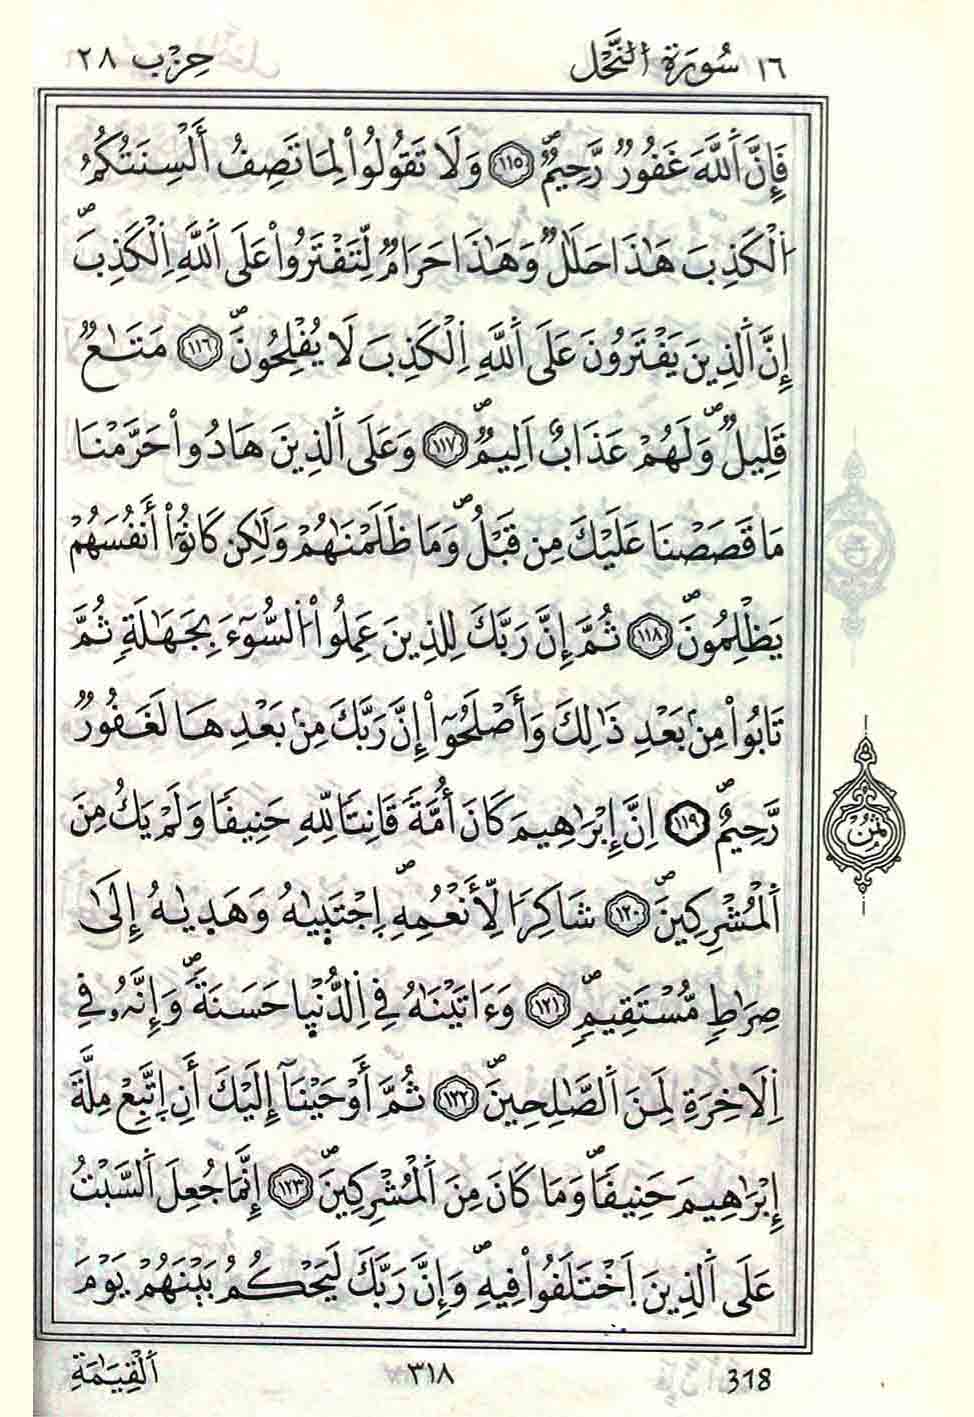 ١٦ سُورَةُ النَّحْلِ حِزْب ٢٨
فَإِنَّ اَ۬للَّهَ غَفُورٞ رَّحِيمٞۖ ١١٥ وَلَا تَقُولُواْ لِمَا تَصِفُ أَلْسِنَتُكُمُ
اُ۬لْكَذِبَ هَٰذَا حَلَٰلٞ وَهَٰذَا حَرَامٞ لِّتَفْتَرُواْ عَلَى اَ۬للَّهِ اِ۬لْكَذِبَۖ
إِنَّ اَ۬لذِينَ يَفْتَرُونَ عَلَى اَ۬للَّهِ اِ۬لْكَذِبَ لَا يُفْلِحُونَۖ ١١٦ مَتَٰعٞ
قَلِيلٞۖ وَلَهُمْ عَذَابٌ اَلِيمٞۖ ١١٧ وَعَلَى اَ۬لذِينَ هَادُواْ حَرَّمْنَا
مَا قَصَصْنَا عَلَيْكَ مِن قَبْلُۖ وَمَا ظَلَمْنَٰهُمْ وَلَٰكِن كَانُوٓاْ أَنفُسَهُمْ
يَظْلِمُونَۖ ١١٨ ثُمَّ إِنَّ رَبَّكَ لِلذِينَ عَمِلُواْ اُ۬لسُّوٓءَ بِجَهَٰلَةٖ ثُمَّ
تَابُواْ مِنۢ بَعْدِ ذَٰلِكَ وَأَصْلَحُوٓاْ إِنَّ رَبَّكَ مِنۢ بَعْدِهَا لَغَفُورٞ
رَّحِيمٌۖ ١١٩ اِنَّ إِبْرَٰهِيمَ كَانَ أُمَّةٗ قَانِتاٗ لِلهِ حَنِيفاٗ وَلَمْ يَكُ مِنَ
اَ۬لْمُشْرِكِينَۖ ١٢٠ شَاكِراٗ لِّأَنْعُمِهِۖ اِ۪جْتَب۪يٰهُ وَهَد۪يٰهُ إِلَىٰ
صِرَٰطٖ مُّسْتَقِيمٖۖ ١٢١ وَءَاتَيْنَٰهُ فِي اِ۬لدُّنْي۪ا حَسَنَةٗۖ وَإِنَّهُۥ فِي
اِ۬لَاخِرَةِ لَمِنَ اَ۬لصَّٰلِحِينَۖ ١٢٢ ثُمَّ أَوْحَيْنَآ إِلَيْكَ أَنِ اِ۪تَّبِعْ مِلَّةَ
إِبْرَٰهِيمَ حَنِيفاٗۖ وَمَا كَانَ مِنَ اَ۬لْمُشْرِكِينَۖ ١٢٣ إِنَّمَا جُعِلَ اَ۬لسَّبْتُ
عَلَى اَ۬لذِينَ اَ۪خْتَلَفُواْ فِيهِۖ وَإِنَّ رَبَّكَ لَيَحْكُمُ بَيْنَهُمْ يَوْمَ
ثُمُن
اَ۬لْقِيَٰمَةِ ٣١٨ 318